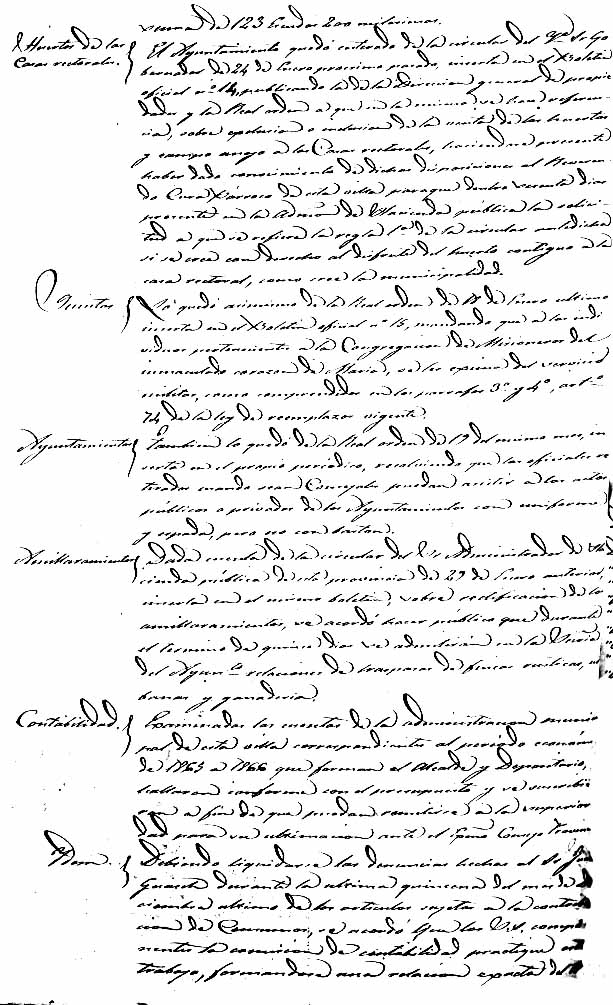 suma de 123 Escudos 200 milesimas.
Huertos de las
Casas rectorales.
El Ayuntamiento quedó enterado de la circular del Sr. Go
bernador de 24 de Enero proximo pasado, inserta en el Boletin
oficial nº 14, publicando la de la Direccion general de propie
dades y la Real orden a que en la misma se hace referen
cia, sobre esclusion o inclusion de la venta de los huertos
y campos anejos a las Casas rectorales, haciendose presente
haber dado conocimiento de dichas disposiciones al Reveren
do Cura Párroco de esta villa para que dentro veinte dias
presente en la Admon de Hacienda pública la solici
tud a que se refiere la regla 1ª de la circular antedicha
si se cree con derecho al disfrute del huerto contiguo a la
casa rectoral, como cree la municipalidad.
Quintas
Lo quedó asimismo de la Real orden de 18 de Enero ultimo
inserta en el Boletin oficial nº 15, mandando que a los indi
viduos pertenecientes a la Congregacion de Misioneros del
inmaculado corazon de Maria, se les exima del servicio
militar, como comprendidos en los parrafos 3º y 4º, artº
74 de la ley de reemplazos vigente.
Ayuntamientos
Tambien lo quedó de la Real orden de 19 del mismo mes, in
serta en el propio periódico, resolviendo que los oficiales re
tirados cuando sean Concejales puedan asistir a los actos
públicos o privados de los Ayuntamientos con uniforme
y espada, pero no con baston.
Amillaramientos
Dada cuenta de la circular del Sr. Administrador de Ha
cienda pública de esta provincia de 29 de Enero anterior,
inserta en el mismo boletin, sobre rectificacion de los
amillaramientos, se acordó hacer público que durante
el termino de quince dias se admitirán en la Secria
del Ayunto relaciones de traspaso de fincas rusticas, ur
banas y ganaderia.
Contabilidad.
Examinadas las cuentas de la administracion munici
pal de esta villa correspondientes al periodo económico
de 1865 a 1866 que forman el Alcalde y Depositario,
hallaron conforme con el presupuesto y se suscribie
ron a fin de que puedan remitirse a la superiori
dad para su ultimacion ante el Consejo
Debiendo liquidarse las denuncias hechas al Sr.
durante la ultima quincena del mes de
ciembre ultimo de los articulos sujetos a la contribu
cion de Consumos, se acordó que los S.S. compo
nentes la comision de contabilidad practiquen
trabajo, formandose una relacion exacta de